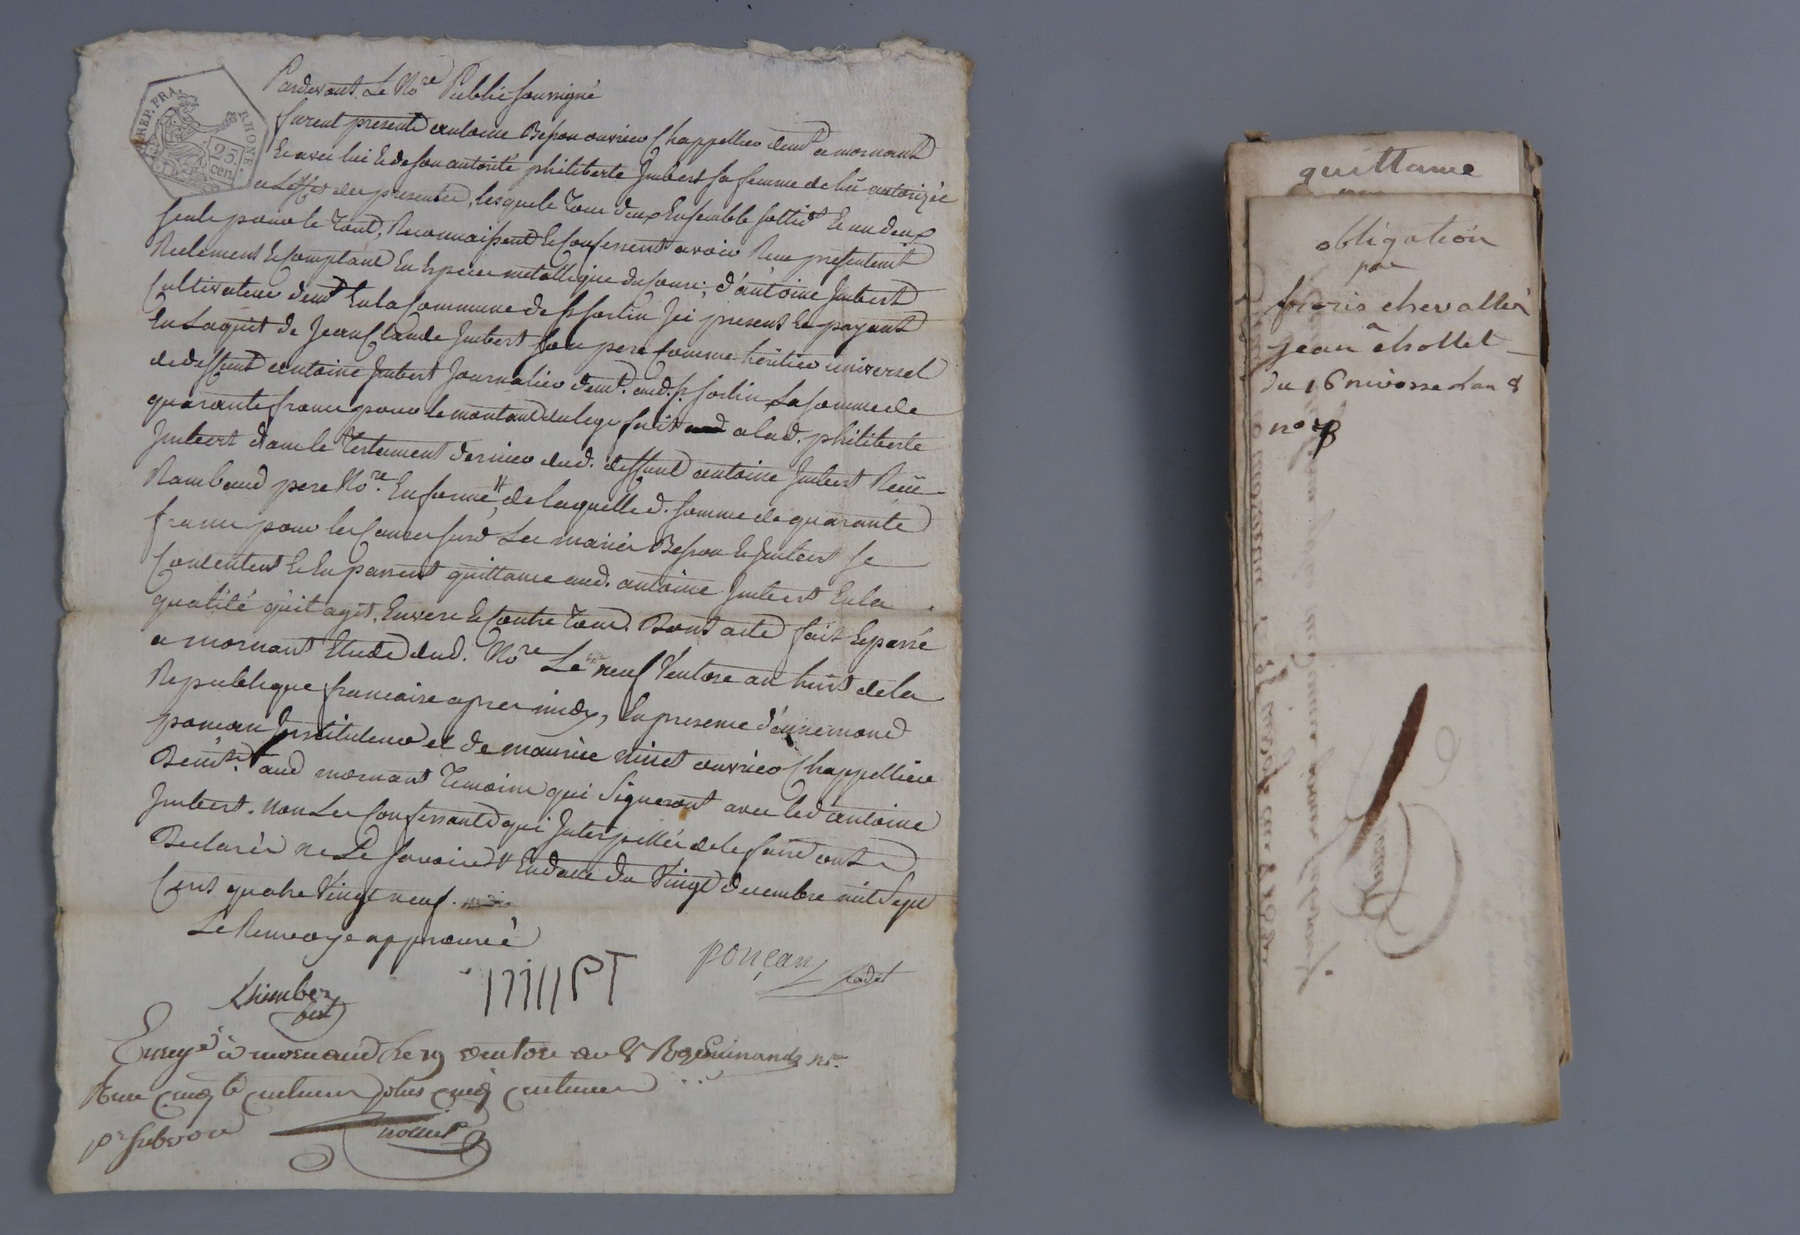 REP. FRA. RHONE.
25. cen.
Pardevant Le No.re Public soussigné
furent present antoine Besson ouvrier Chappellier demt a mornant
Et avec lui Et de son autorité philiberte Imbert sa femme de lui autorizée
a L'effet des presentes, lesquels Tous deux Ensemble sollidt Et un deux
seule pour le Tout, Reconnaissent Et Confessent avoir Reçu presentemt
Réelement Et Comptant En Espèces metallique du jour; d'antoine Imbert
Cultivateur demt En la Commune de st sorlin Ici present Et payant
En Laquit de Jean Claude Imbert son pere Comme héritier universel
de deffunt antoine Imbert Journalier demt. aud. st sorlin La somme de
quarante francs pour le montant du legs fait a lad. philiberte
Imbert dans le Testament dernier dud. deffunt antoine Imbert Reçu
Rambaud pere No.re En forme # de laquelle d. somme de quarante
francs pour les Causes susd Les mariés Besson Et Imbert se
Contentent Et En passent quittance aud. antoine Imbert En la
qualité qu'il agit, Envers Et Contre Tous. Dont acte fait Et passé
a mornant Etude dud. No.re Le neuf Ventose an huit de la
Republique francaise apres midy, En presence d'annemond
poncan Instituteur et de maurice ninet ouvrier Chappellier
Demts. aud mornant Temoins qui Signeront avec led antoine
Imbert. non Les Confessants qui Interpellés de le faire ont
Declarés ne Le Savoir # En date du Vingt decembre mil Sept
Cent quatre Vingt neuf.
Le Renvoye approuvé
ponçan cadet
Enregé à mornand Le 19 ventose an 8
Reçu cinq te centimes plus cinq centimes
quittance
obligation
par
francois chevallier
a
jean chollet
du 16 nivosse dan 8
no